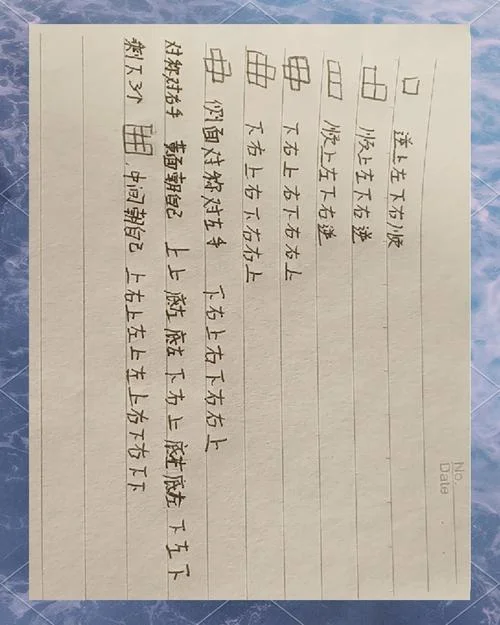 No.
Date
逆上左下右顺
顺上左下右逆
顺上左下右逆
下右上右下右右上
下右上右下右右上
侧面对称对左手 下右上右下右右上
对称对右手 黄面朝自己 上上底左底左下右上底左底左下左下
剩下3个 中间朝自己 上右上左上左上右下右下下